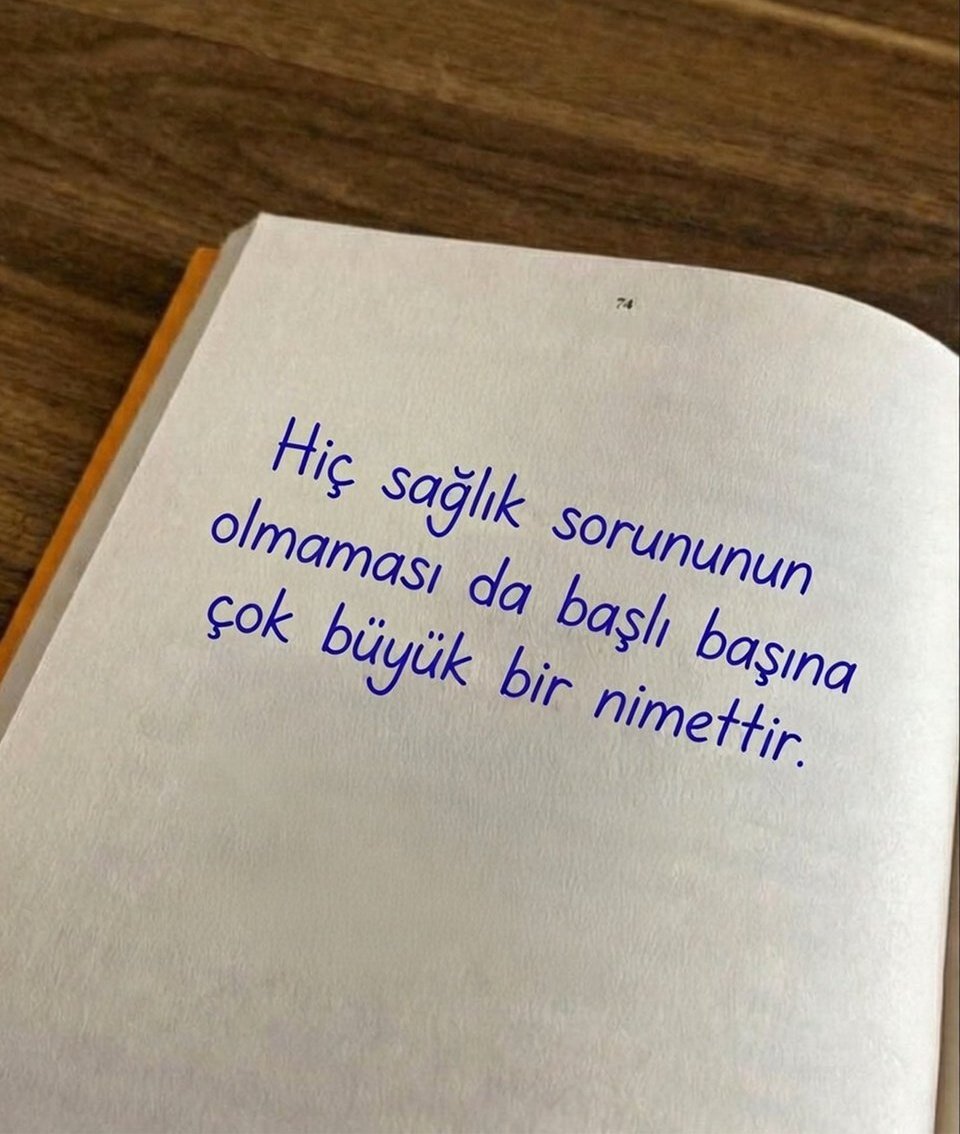 74
Hiç sağlık sorununun
olmaması da başlı başına
çok büyük bir nimettir.